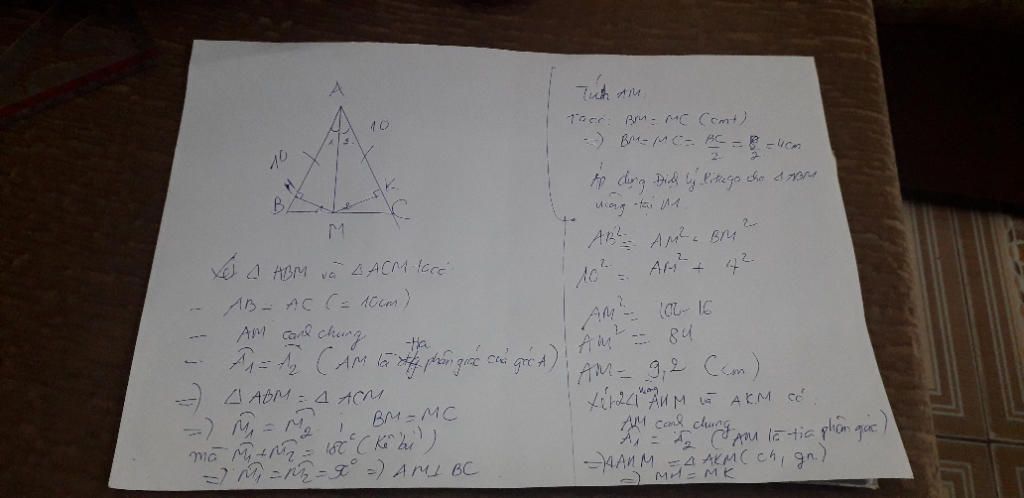 A
10
10
1 2
H
K
B
C
M
Xét Δ ABM và ΔACM ta có
- AB = AC (= 10cm)
- AM cạnh chung
- Â1 = Â2 (AM là tia phân giác của góc A)
=) Δ ABM = Δ ACM
=) M̂1 = M̂2 ; BM = MC
mà M̂1 + M̂2 = 180° (kề bù)
=) M̂1 = M̂2 = 90° =) AM ⊥ BC
Tính AM.
Ta có: BM = MC (cmt)
=) BM = MC = BC/2 = 8/2 = 4cm
Áp dụng Định lý Pitago cho Δ ABM
vuông tại M.
AB² = AM² + BM²
10² = AM² + 4²
AM² = 100 - 16
AM² = 84
AM = 9,2 (cm)
Xét 2Δ vuông AHM và AKM có
AM cạnh chung
Â1 = Â2 (AM là tia phân giác)
=) ΔAHM = ΔAKM (ch, gn)
=) MH = MK